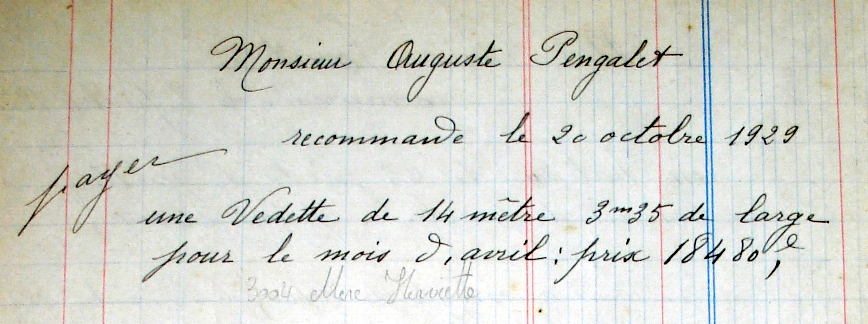 Monsieur Auguste Pengalet
recommande le 20 octobre 1929
payer
une Vedette de 14 mètre 3m35 de large
pour le mois d,avril : prix 18480,
Henriette